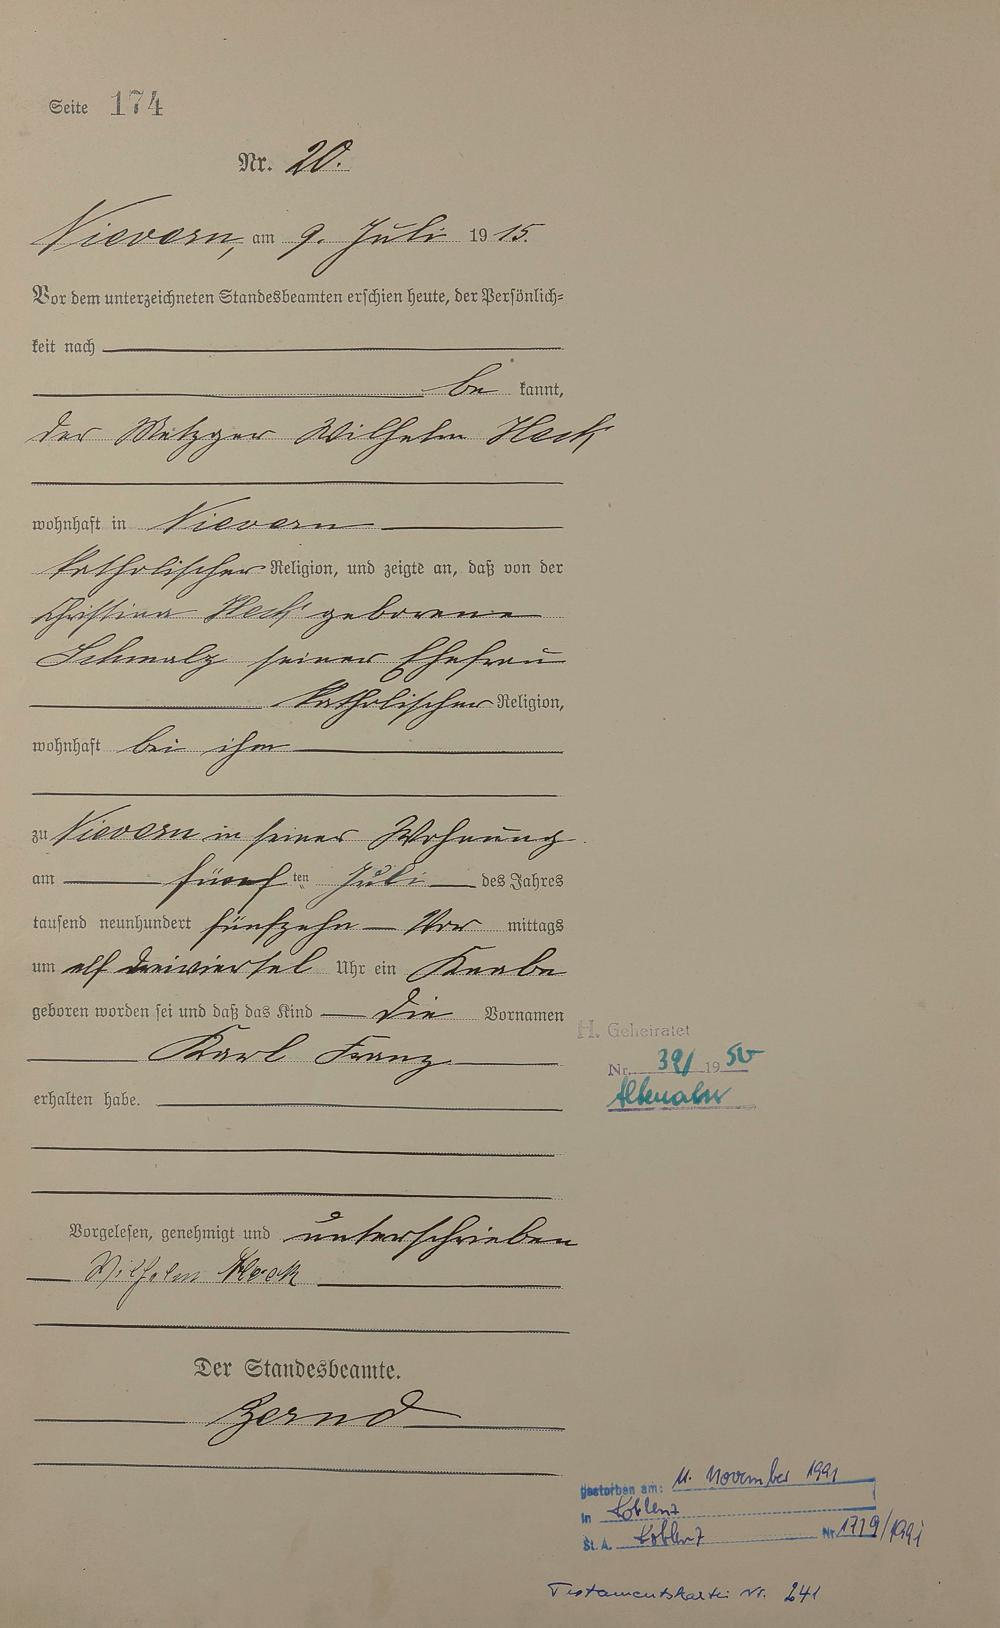 Seite 174
Nr. 20.
Nievern, am 9. Juli 1915.
Vor dem unterzeichneten Standesbeamten erschien heute, der Persönlich-
keit nach
be kannt,
der Metzger Wilhelm Heck
wohnhaft in Nievern
katholischer Religion, und zeigte an, daß von der
Christina Heck geborene
Schmalz seiner Ehefrau
katholischer Religion,
wohnhaft bei ihm
zu Nievern in seiner Wohnung
am fünften Juli des Jahres
tausend neunhundert fünfzehn Vor mittags
um elf dreiviertel Uhr ein Knabe
geboren worden sei und daß das Kind die Vornamen
Karl Franz
erhalten habe.
Vorgelesen, genehmigt und unterschrieben
Wilhelm Heck
Der Standesbeamte.
Zernd
H. Geheiratet
Nr. 1950
Altenahr
gestorben am: 11. November 1991
in Koblenz
St. A. Koblenz Nr. 1719/1991
Testamentskartei Nr. 241